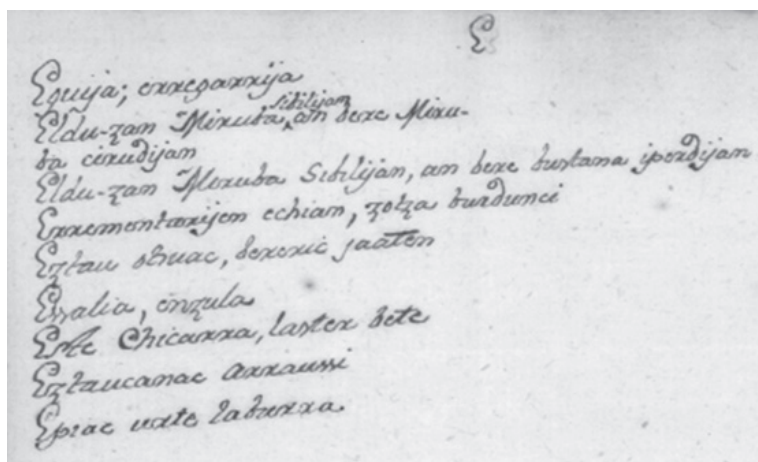 E
Eguija; erregarrija
Eldu-zan Miruba sibilijam, an bere Miru-
ba cirudijan
Eldu-zan Miruba Sibilijan, an bere bustana iperdijan
Errementarijen echian, zotza burdunci
Eztau otsuac, bereric jaaten
Essalia, onzula
Este Chicarra, laster bete
Eztaucanac Arraussi
Epiac urte laburra